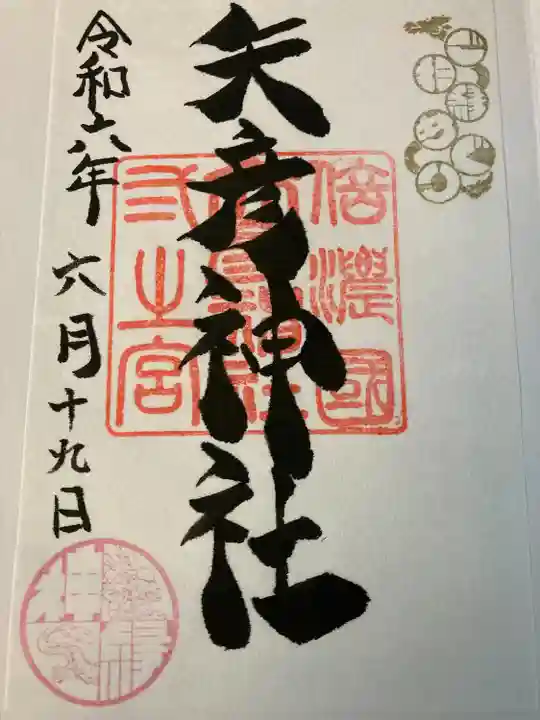 矢彦神社
信濃國
弐之宮
令和六年 六月十九日